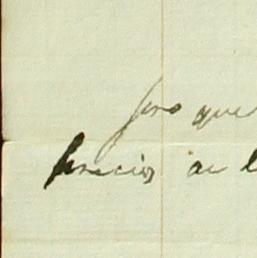 pero que
precios de l